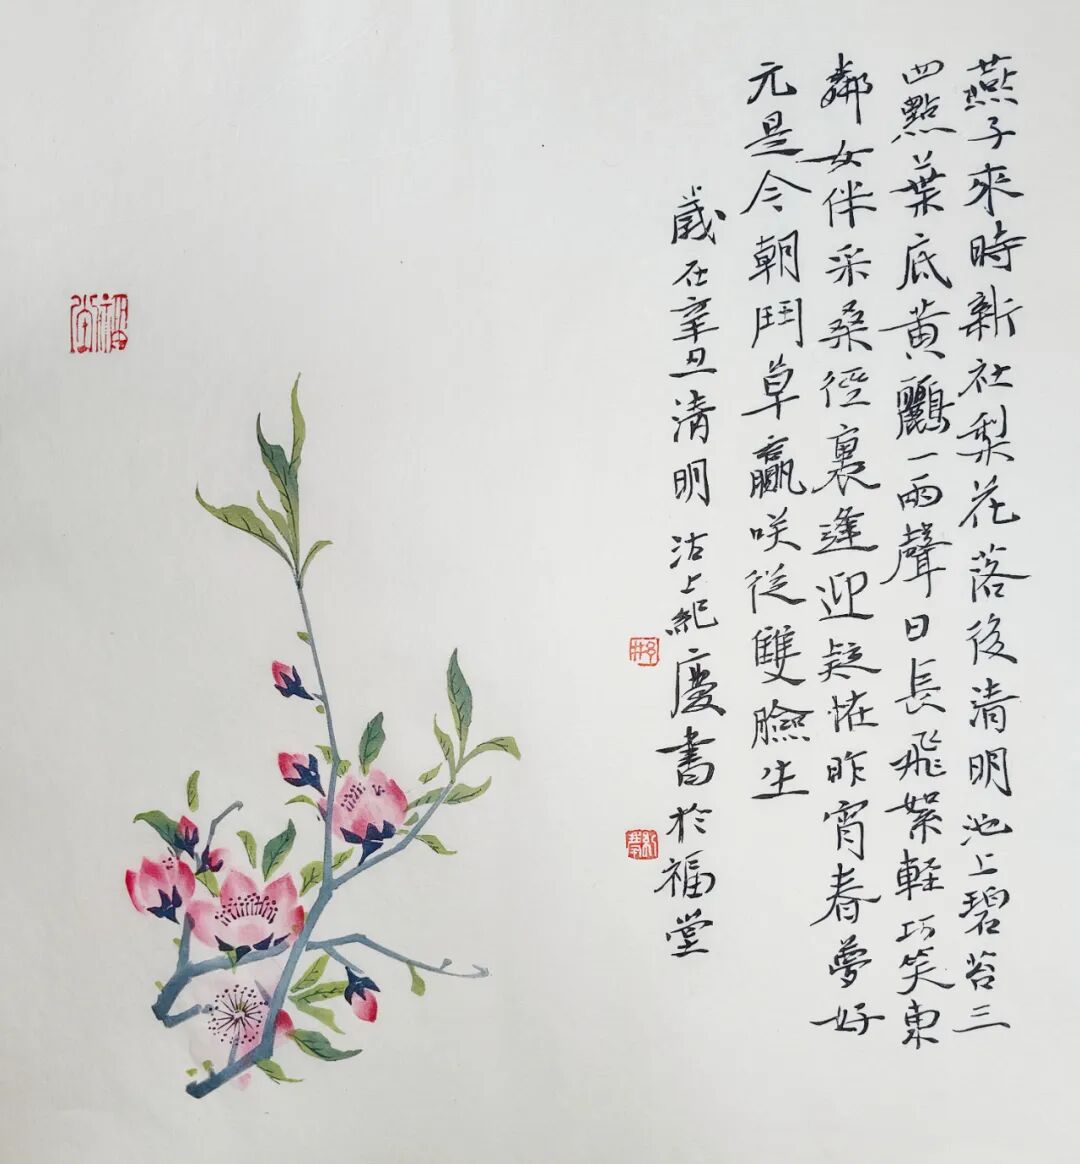 燕子來時新社梨花落後清明池上碧苔三
四點葉底黃鸝一兩聲日長飛絮輕巧笑東
鄰女伴采桑徑裏逢迎疑怪昨宵春夢好
元是今朝鬥草贏咲從雙臉生
歲在辛丑清明沽上紀慶書於福堂
福堂